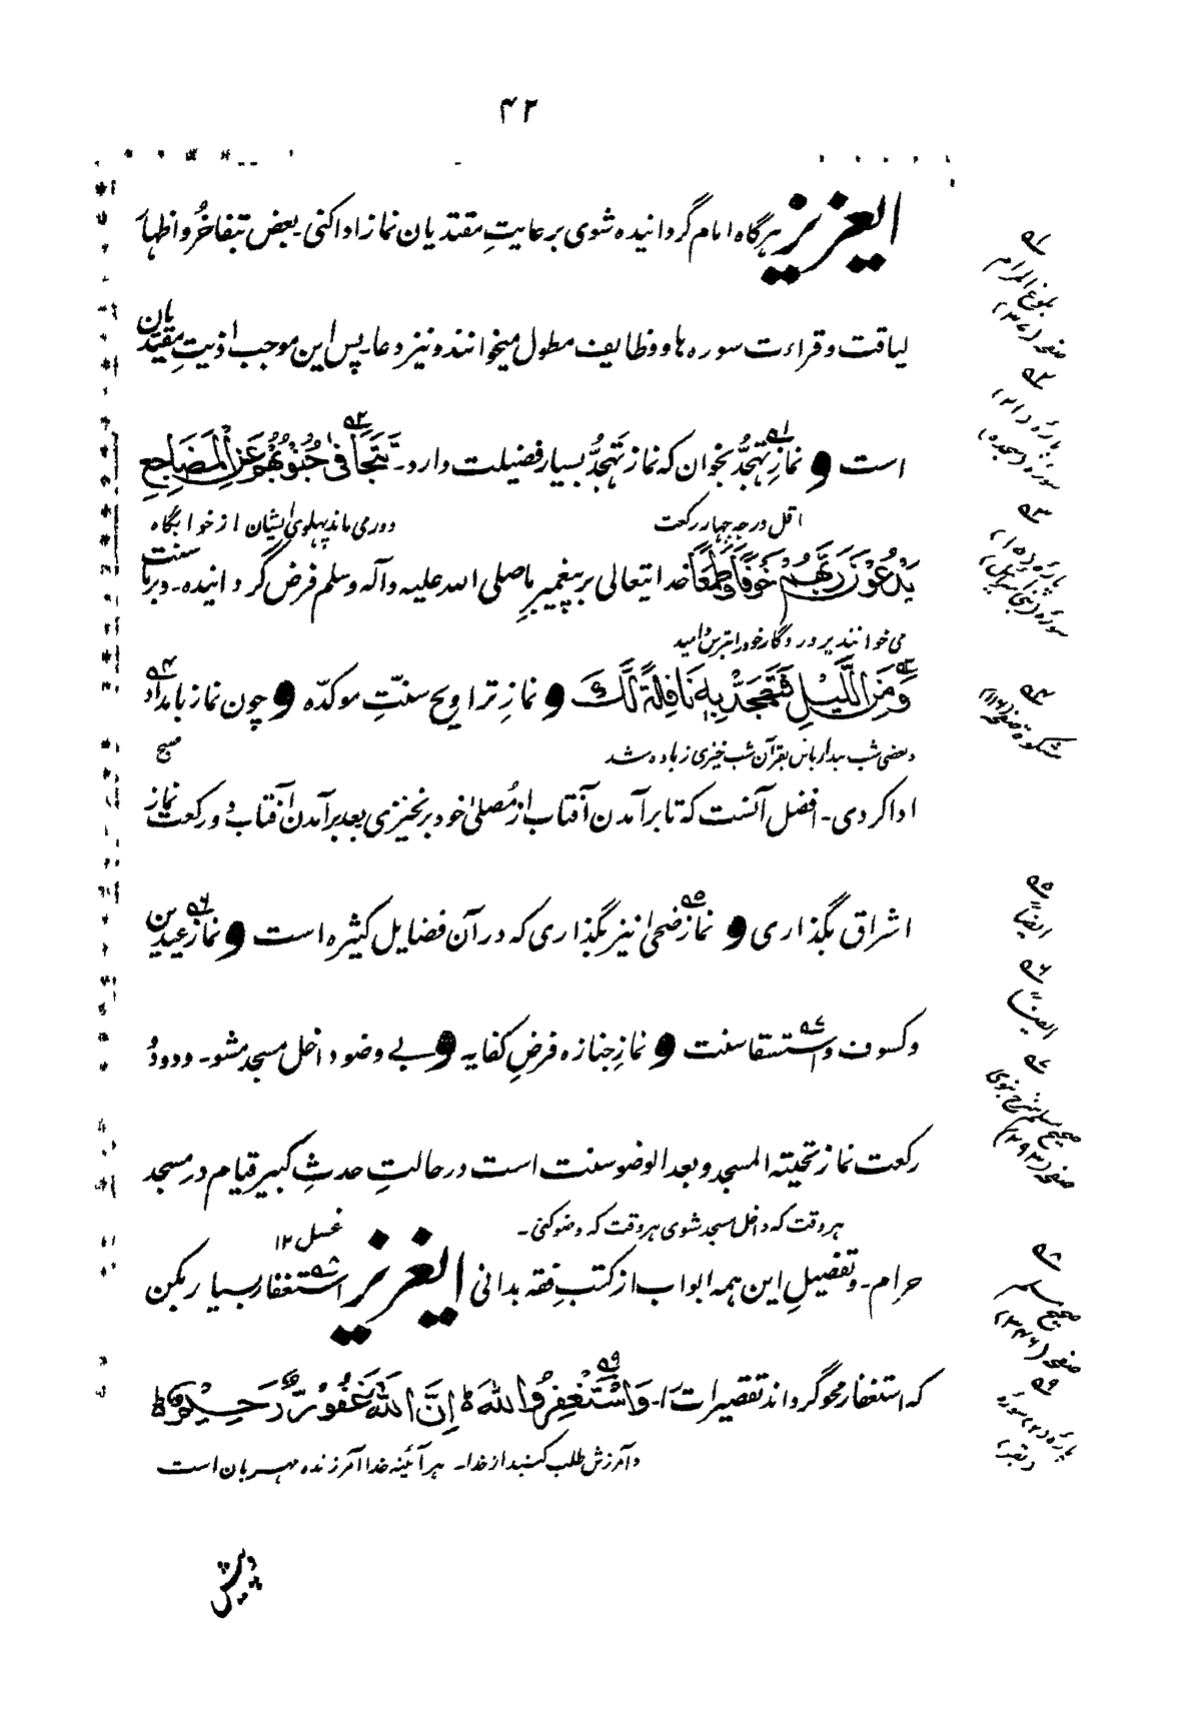 ۴۲
ایعزیز ہرگاہ امام گردانیدہ شوی برعایتِ مقتدیان نماز ادا کنی۔ بعض بتفاخُر و اظہار
لیاقت و قراءت سورہ ہا و وظایف مطول میخوانند و نیز دعا۔ پس این موجب اذیتِ مقتدیان
است و نمازِ تہجدُّ بخوان کہ نماز تہجدُّ بسیار فضیلت دارد۔ تَتَجَافٰی جُنُوْبُهُمْ عَنِ الْمَضَاجِعِ
اقل درجہ چہار رکعت دور می ماند پہلوی ایشان از خوابگاہ
یَدْعُوْنَ رَبَّهُمْ خَوْفًا وَّطَمَعًا خدایتعالی بر پیغمبرِ ما صلی اللہ علیہ وآلہ وسلم فرض گردانیدہ۔ و بر ما سنت
می خوانند پروردگار خود را بترس و امید
وَمِنَ الَّلیْلِ فَتَهَجَّدْ بِهٖ نَافِلَةً لَّكَ و نمازِ تراویح سنتِّ موکدّہ و چون نماز بامداد
و بعضی شب بیدار باش بقرآن شب خیزی زیادہ شد صبح
ادا کردی۔ افضل آنست کہ تا برآمدن آفتاب از مُصلیٰ خود برنخیزی بعد برآمدن آفتاب دو رکعت نماز
اشراق بگذاری و نماز ضحیٰ نیز بگذاری کہ در آن فضایل کثیرہ است و نماز عیدین
و کسوف و استسقا سنت و نمازِ جنازہ فرضِ کفایہ و بے وضو داخل مسجد مشو۔ و دو دُو
رکعت نماز تحیتہ المسجد و بعد الوضو سنت است در حالتِ حدثِ کبیر قیام در مسجد
ہر وقت کہ داخل مسجد شوی ہر وقت کہ وضو کنی۔ غسل ۱۲
حرام۔ و تفصیلِ این ہمہ ابواب از کتب فقہ بدانی ایعزیز استغفار بسیار بکن
کہ استغفار محو گرداند تقصیرات را۔ وَاسْتَغْفِرُوا اللهَ ط اِنَّ اللهَ غَفُوْرٌ رَّحِیْمٌ ط
و آمرزش طلب کنید از خدا۔ ہر آئینہ خدا آمرزندہ مہربان است
۹۱
بلوغ المرام
صفحہ (۳۷)
۹۲
پارۂ (۲۱)
سورۂ (سجدہ)
۹۳
پارۂ (۱۵)
سورۂ (بنی اسرائیل)
۹۴
مشکوۃ صفحہ (۱۱۶)
۹۵
ایضاً
۹۶
ایضاً
۹۷
صحیح مسلم شرح نووی
صفحہ (۲۹۳)
۹۸
صحیح مسلم
صفحہ (۳۴۶)
۹۹
پارۂ (۲) سورہ
(بقر)